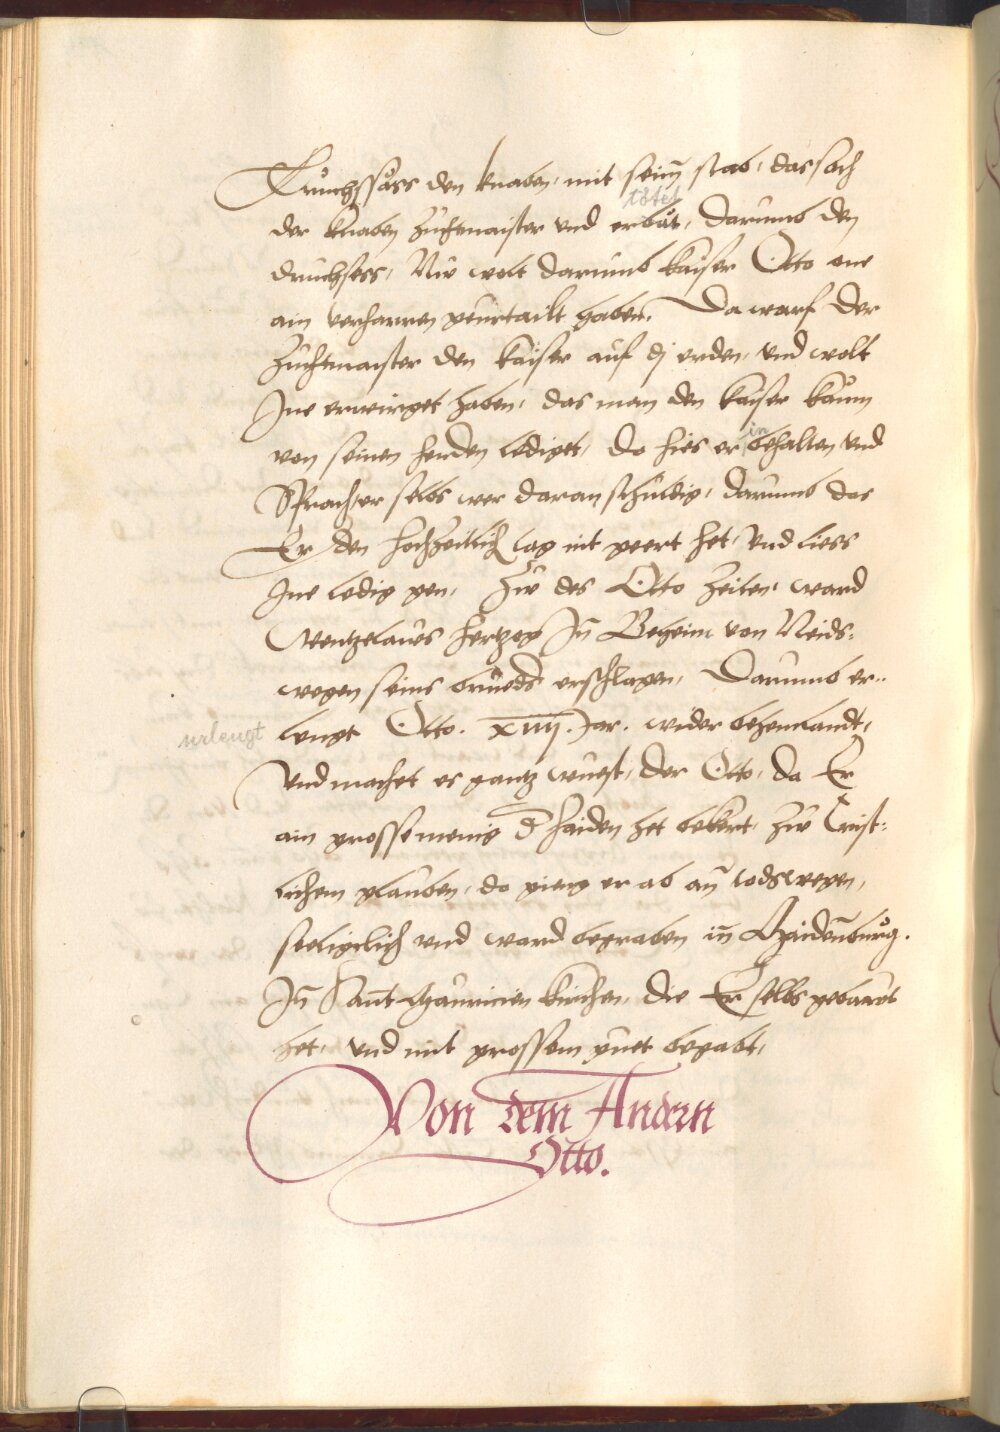 Truchsäss den knaben, mit seim̄ stab, das sach
tötet
der knaben zuchtmaister vnd erbat, darumb den
druchsess, Nw wolt darumb kaiser Otto one
ain verharren geurtailt haben. Da warf der
zuchtmaister den kaiser auf dj erden, vnd wolt
Jne erwürget haben, das man den kaiser kaum
in
von seinen henden lediget, do hies er behalten vnd
Sprach er selbs wer daran schuldig, darumb das
Er den hochzeitlich tag nit geert het, vnd liess
Jne ledig gen, Zw des Otto zeiten ward
Wentzelaues hertzog Jn̄ Beheim von Neids-
wegen seins brueds erschlagen, Darumb er-
urleugt
leugt Otto. xiiij. Jar. wider behemlandt,
Vnd machet es gantz wuest, der Otto, da Er
ain grosse menig d haiden het bekert, zw Crist-
lichem glauben, do gieng er ab an̄ todswegen,
seeligclich vnd ward begraben in̄ Maidenburg.
Jn̄ Sant Mauricien kirchen, die Er selbs gebawt
het, vnd mit grossem guet begabt,
Von dem Andern
Otto.